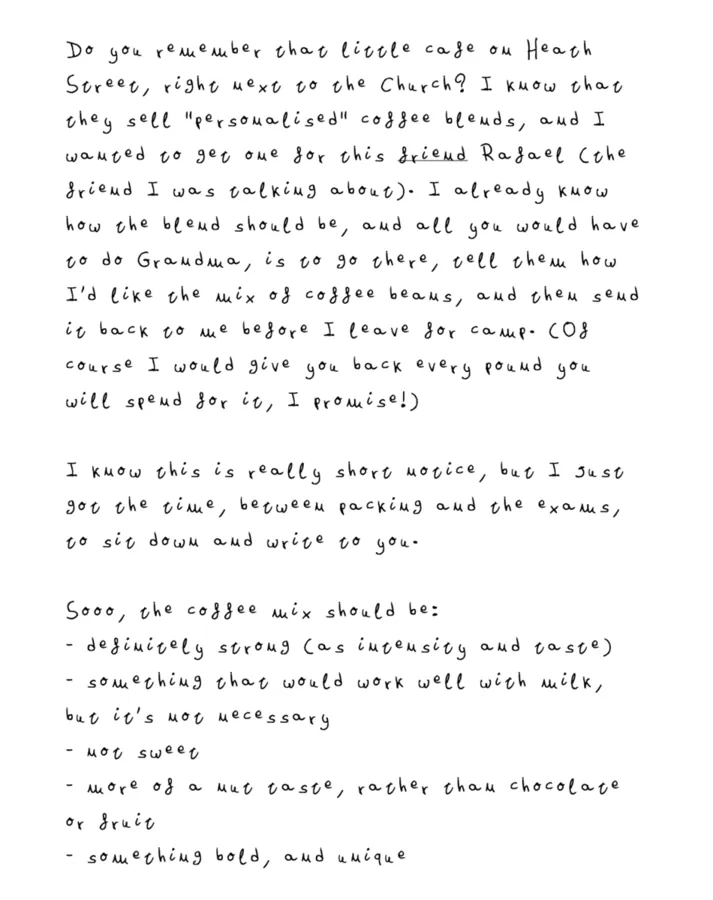 Do you remember that little cafe on Heath
Street, right next to the Church? I know that
they sell "personalised" coffee blends, and I
wanted to get one for this friend Rafael (the
friend I was talking about). I already know
how the blend should be, and all you would have
to do Grandma, is to go there, tell them how
I'd like the mix of coffee beans, and then send
it back to me before I leave for camp. (Of
course I would give you back every pound you
will spend for it, I promise!)

I know this is really short notice, but I just
got the time, between packing and the exams,
to sit down and write to you.

Sooo, the coffee mix should be:
- definitely strong (as intensity and taste)
- something that would work well with milk,
but it's not necessary
- not sweet
- more of a nut taste, rather than chocolate
or fruit
- something bold, and unique